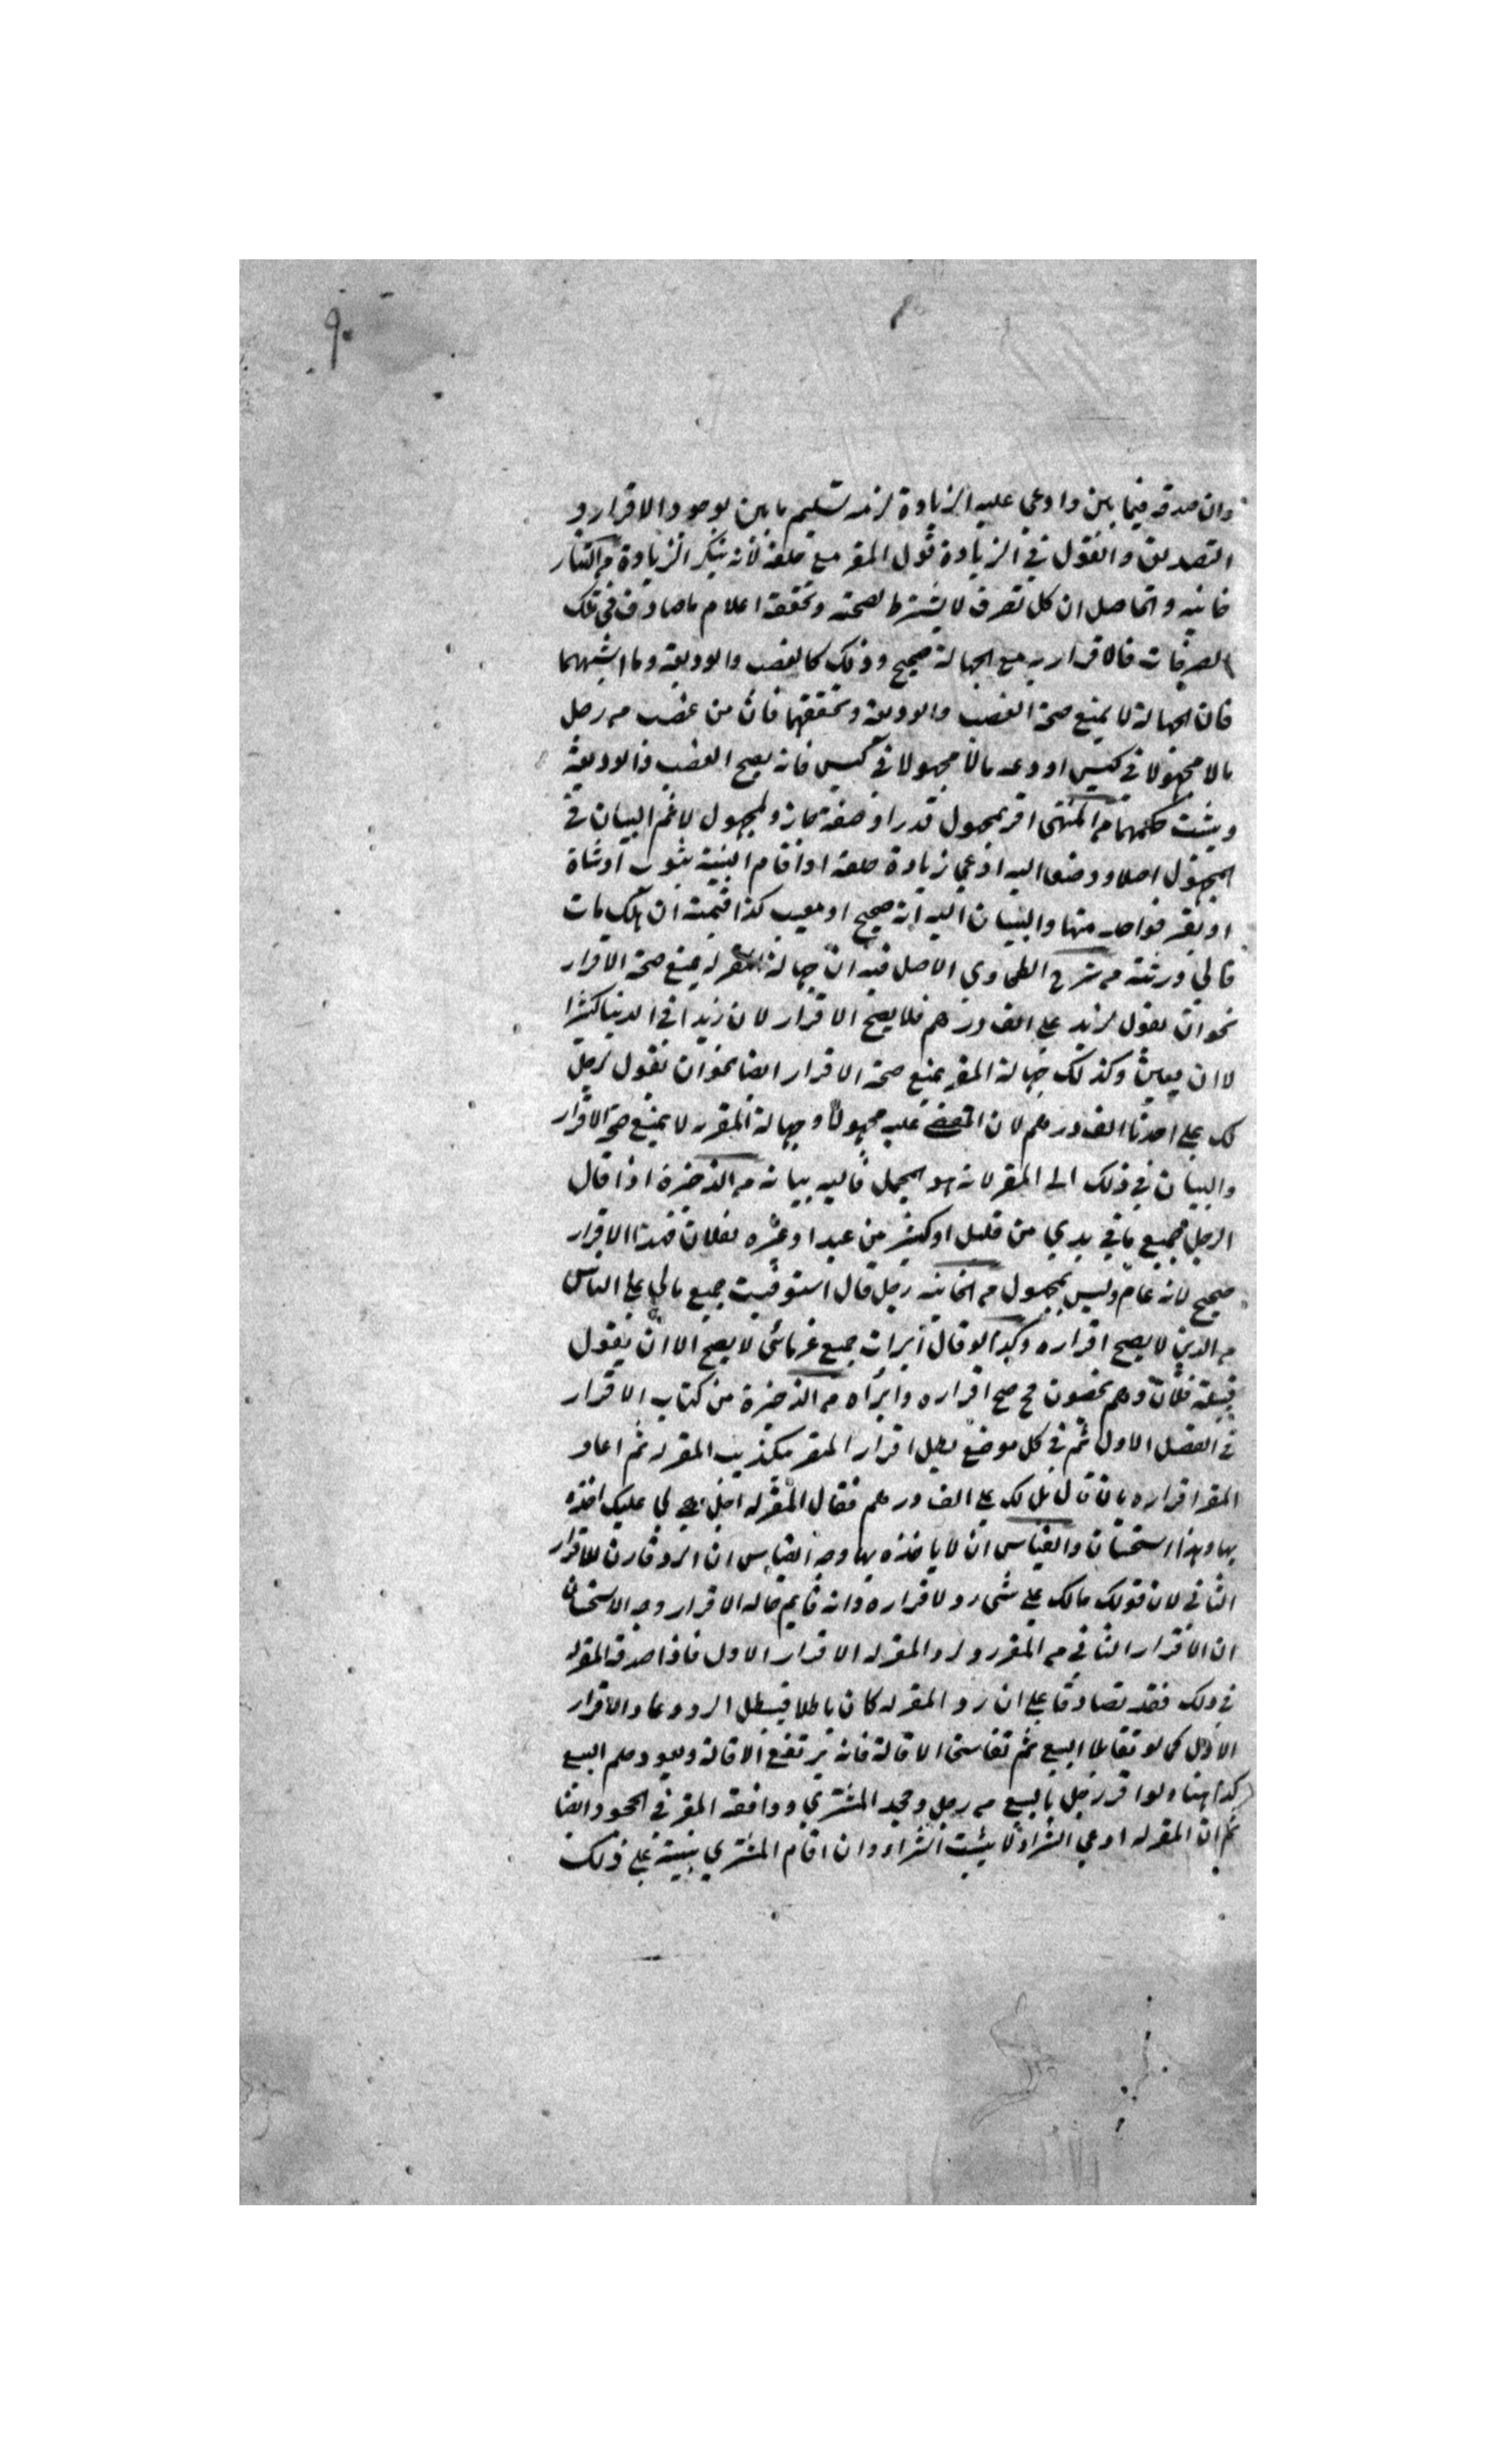 ٩٠
وان صدقه فيما بين وادعى عليه الزيادة لزمه تسليم ما بين لوجود الاقرار و
التصديق والقول في الزيادة قول المقر مع حلفه لانه ينكر الزيادة من التتار
خانيه والحاصل ان كل تصرف لا يشترط لصحته وتحققه اعلام ما صادف في تلك
التصرفات فالاقرار به مع الجهالة صحيح وذلك كالغصب والوديعة وما اشبههما
فان الجهالة لا يمنع صحة الغصب والوديعة وتحققهما فان من غصب من رجل
مالا مجهولا في كيس او ودعه مالا مجهولا في كيس فانه يصح الغصب والوديعة
ويثبت حكمهما من المنتهى اقر بمجهول قدرا وصفة جاز ولمجهول لا ثم البيان في
المجهول اصلا ووصفا اليه ادعى زيادة حلفه او اقام البينة بثوب او شاة
او بقر فواحد منها والبيان اليه انه صحيح او معيب كذا قيمته ان هلك مات
فالى ورثته من شرح الطحاوي الاصل فيه ان جهالة المقر له يمنع صحة الاقرار
نحو ان يقول لزيد علي الف درهم فلا يصح الاقرار لان زيدا في الدنيا كثيرا
الا ان يعين وكذلك جهالة المقر يمنع صحة الاقرار ايضا نحو ان يقول لرجل
لك على احدنا الف درهم لان المقضي عليه مجهولا وجهالة المقر به لا يمنع صحة الاقرار
والبيان في ذلك الى المقر لانه هو المجمل فاليه بيانه من الذخيرة اذا قال
الرجل جميع ما في يدي من قليل او كثير من عبد او غيره لفلان فهذا الاقرار
صحيح لانه عام وليس بمجهول من الخانيه رجل قال استوفيت جميع مالي على الناس
من الدين لا يصح اقراره وكذا لو قال ابرات جميع غرمائي لا يصح الا ان يقول
قبيلة فلان وهم يحصون فح صح اقراره وابراه من الذخيرة من كتاب الاقرار
في الفصل الاول ثم في كل موضع بطل اقرار المقر بتكذيب المقر له ثم اعاد
المقر اقراره بان قال بل لك على الف درهم فقال المقر له اجل هي لي عليك اخذه
بها وهذا استحسان والقياس ان لا ياخذه بها وجه القياس ان الرد قارن للاقرار
الثاني لان قولك مالك علي شيء رد لاقراره وانه قايم حاله الاقرار وجه الاستحسان
ان الاقرار الثاني من المقر رد لرد المقر له الاقرار الاول فاذا صدقه المقر له
في ذلك فقد تصادقا على ان رد المقر له كان باطلا فيبطل الرد وعاد الاقرار
الاول كما لو تقايلا البيع ثم تفاسخا الاقالة فانه يرتفع الاقالة ويعود حكم البيع
كذا هنا ولو اقر رجل بالبيع من رجل وجحد المشتري ووافقه المقر في الجحود ايضا
ثم ان المقر له ادعى الشراء لا يثبت الشراء وان اقام المشتري بينة على ذلك